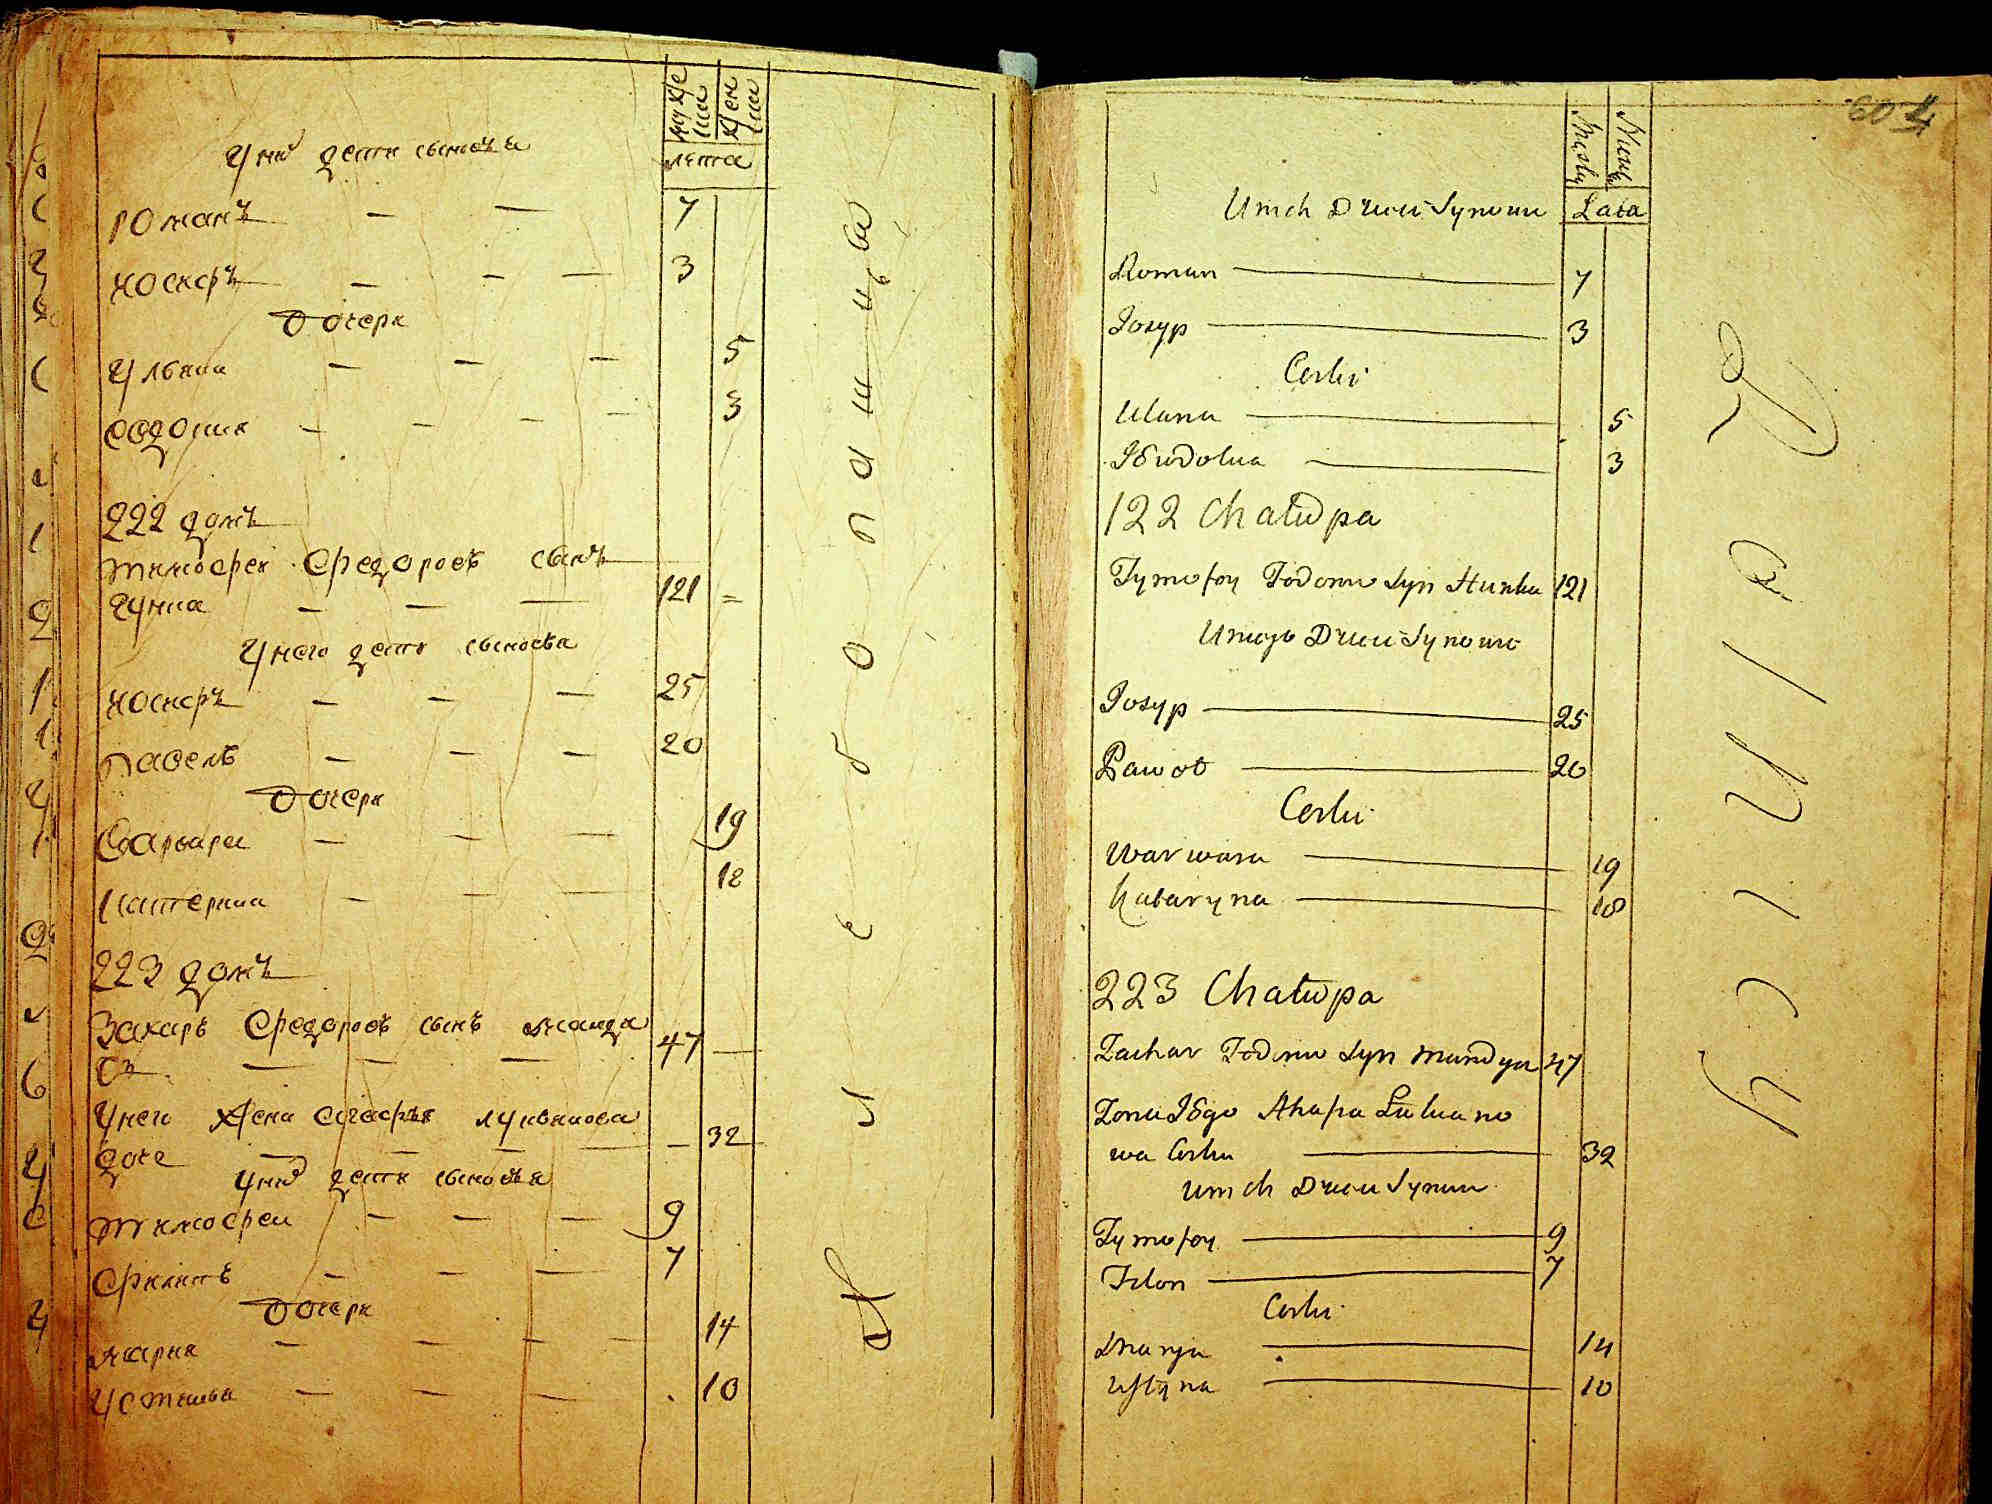 мужеска
женска
лѣта
у них дети сыновья
Романъ — — 7
Иосифъ — — — 3
дочери
Ульяна — — — 5
Евдокия — — — — 3
222 домъ
Тимофей Федоровъ сынъ
Гунка — — — 121 =
У него дети сыновья
Иосифъ — — — 25
Павелъ — — — 20
дочери
Варвара — — — 19
Катерина — — — 18
223 домъ
Захаръ Федоровъ сынъ
— — — 47 —
У него жена Агафья
доче — — — — 32
у них дети сыновья
Тимофей — — — 9
Филипъ — — — 7
дочери
Мария — — — — 14
Устинья — — — 10
60
Męska
Lata
U nich Dzieci Synowie
Roman — 7
Josyp — 3
Corki
Ulana — 5
Jewdokia — 3
122 Chałupa
Tymofey Fedorow Syn Hunka 121
U niego Dzieci Synowie
Josyp — 25
Paweł — 20
Corki
Warwara — 19
Kataryna — 18
223 Chałupa
Zachar Fedorow Syn 47
Zona Jego Ahafia
wa Corka — 32
U nich Dzieci Synowie
Tymofey — 9
Filon — 7
Corki
Marya — 14
Ustyna — 10